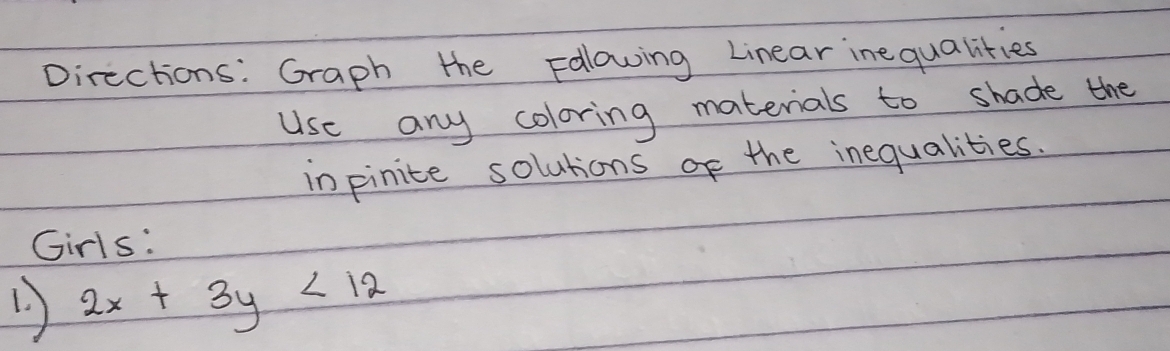 Directions: Graph the Following Linear inequalities
Use any coloring materials to shade the
infinite solutions of the inequalities.
Girls:
1.) 2x + 3y < 12